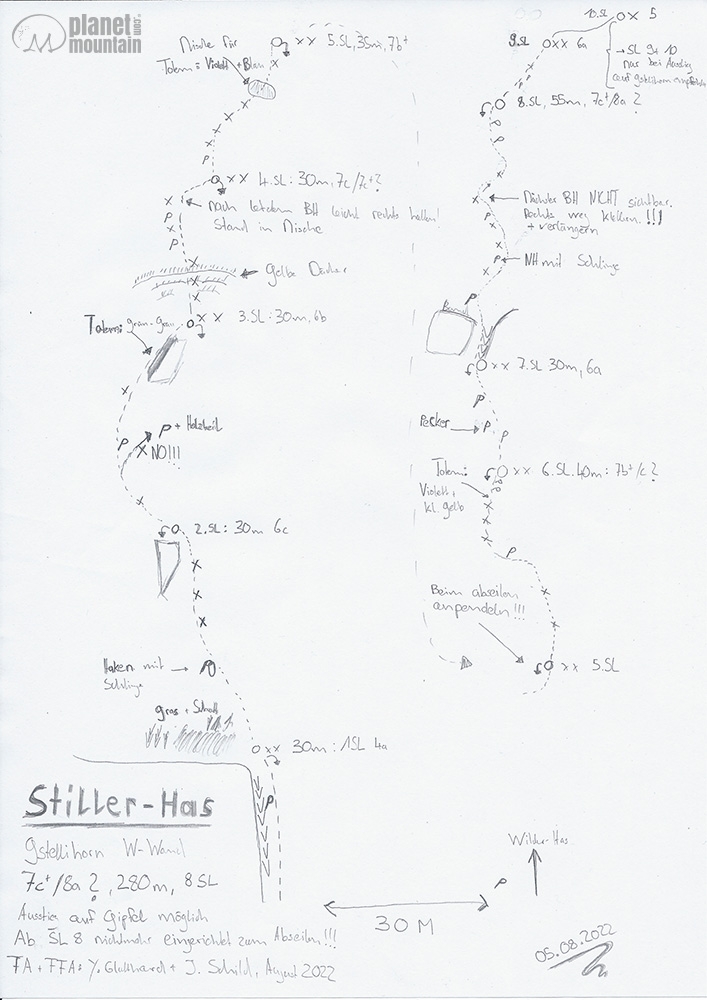 planet
mountain
.com
Nische für
Totem: Violett + Blau
xx 5.SL, 35m, 7b+
P
xx 4.SL: 30m, 7c/7c+?
nach letztem BH leicht rechts halten!
Stand in Nische
P
P
gelbe Dächer
xx 3.SL: 30m, 6b
Totem: grün-grau
P + Holzkeil
P
NO!!!
2.SL: 30m 6c
Haken mit
Schlinge
gras + Schutt
xx 30m: 1SL 4a
P
10.SL x 5
9.SL xx 6a
→ SL 9+10
nur bei Ausstieg
auf gstellihorn
8.SL, 55m, 7c+/8a?
P
P
Nächster BH NICHT sichtbar.
Rechts weg klettern!!!
+ verlängern
P
NH mit Schlinge
P
xx 7.SL 30m, 6a
P
Pecker
P
P
Totem:
Violett +
kl. gelb
xx 6.SL. 40m: 7b+/c?
P
Beim abseilen
anpendeln!!!
xx 5.SL
Stiller-Has
Gstellihorn W-Wand
7c+/8a?, 280m, 8SL
Ausstieg auf Gipfel möglich
Ab SL 8 nichtmehr eingerichtet zum Abseilen!!!
FA + FFA: Y. Glatthard + J. Schild, August 2022
30M
P
Wilder-Has
05.08.2022